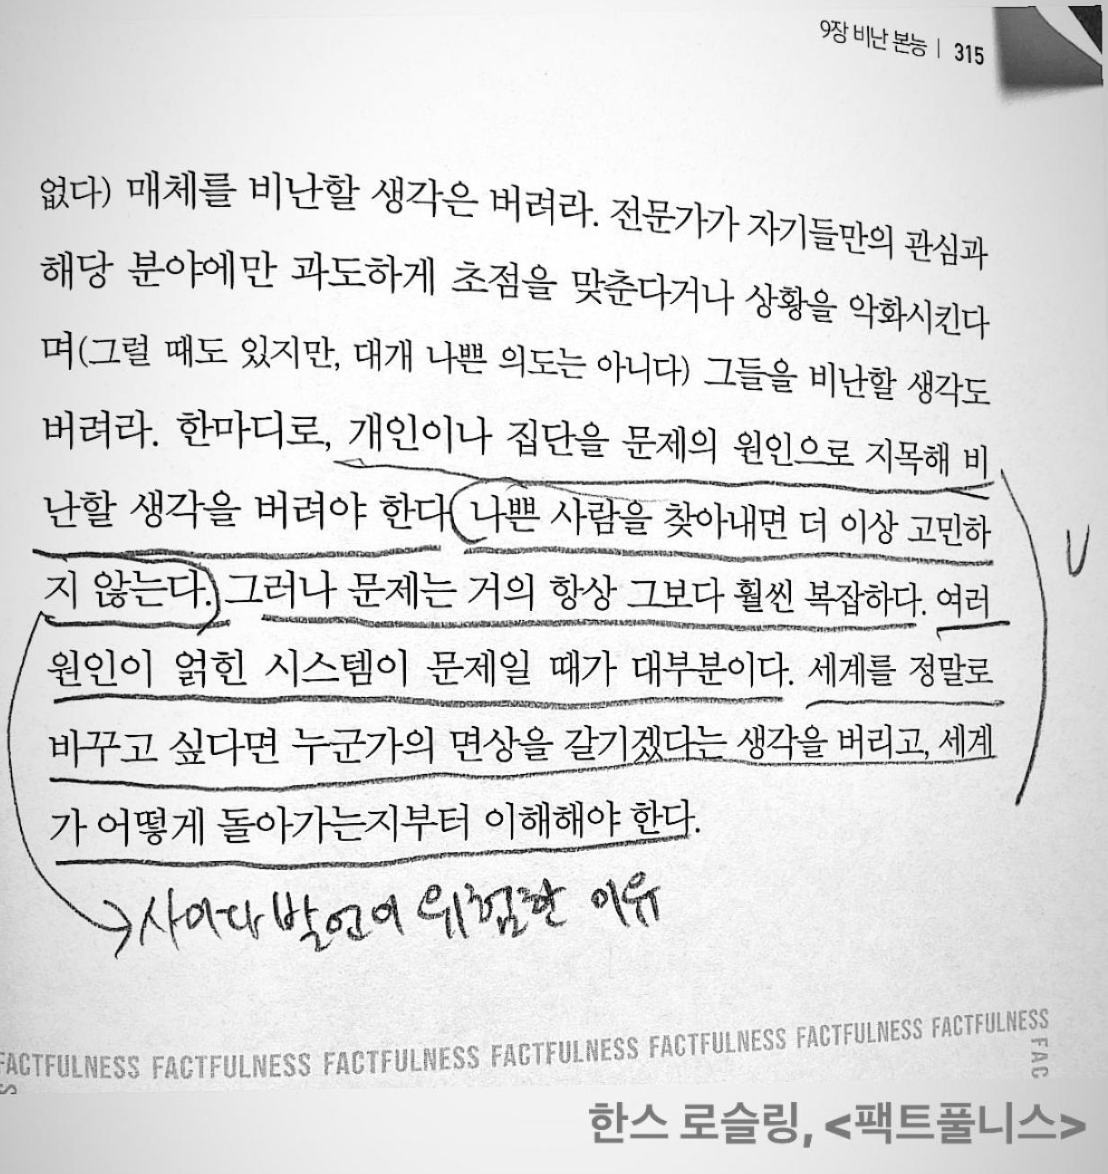 9장 비난 본능 | 315
없다) 매체를 비난할 생각은 버려라. 전문가가 자기들만의 관심과
해당 분야에만 과도하게 초점을 맞춘다거나 상황을 악화시킨다
며(그럴 때도 있지만, 대개 나쁜 의도는 아니다) 그들을 비난할 생각도
버려라. 한마디로, 개인이나 집단을 문제의 원인으로 지목해 비
난할 생각을 버려야 한다. 나쁜 사람을 찾아내면 더 이상 고민하
지 않는다. 그러나 문제는 거의 항상 그보다 훨씬 복잡하다. 여러
원인이 얽힌 시스템이 문제일 때가 대부분이다. 세계를 정말로
바꾸고 싶다면 누군가의 면상을 갈기겠다는 생각을 버리고, 세계
가 어떻게 돌아가는지부터 이해해야 한다.
→사이다 발언이 위험한 이유
FACTFULNESS FACTFULNESS FACTFULNESS FACTFULNESS FACTFULNESS FACTFULNESS FACTFULNESS
FAC
S
한스 로슬링, <팩트풀니스>